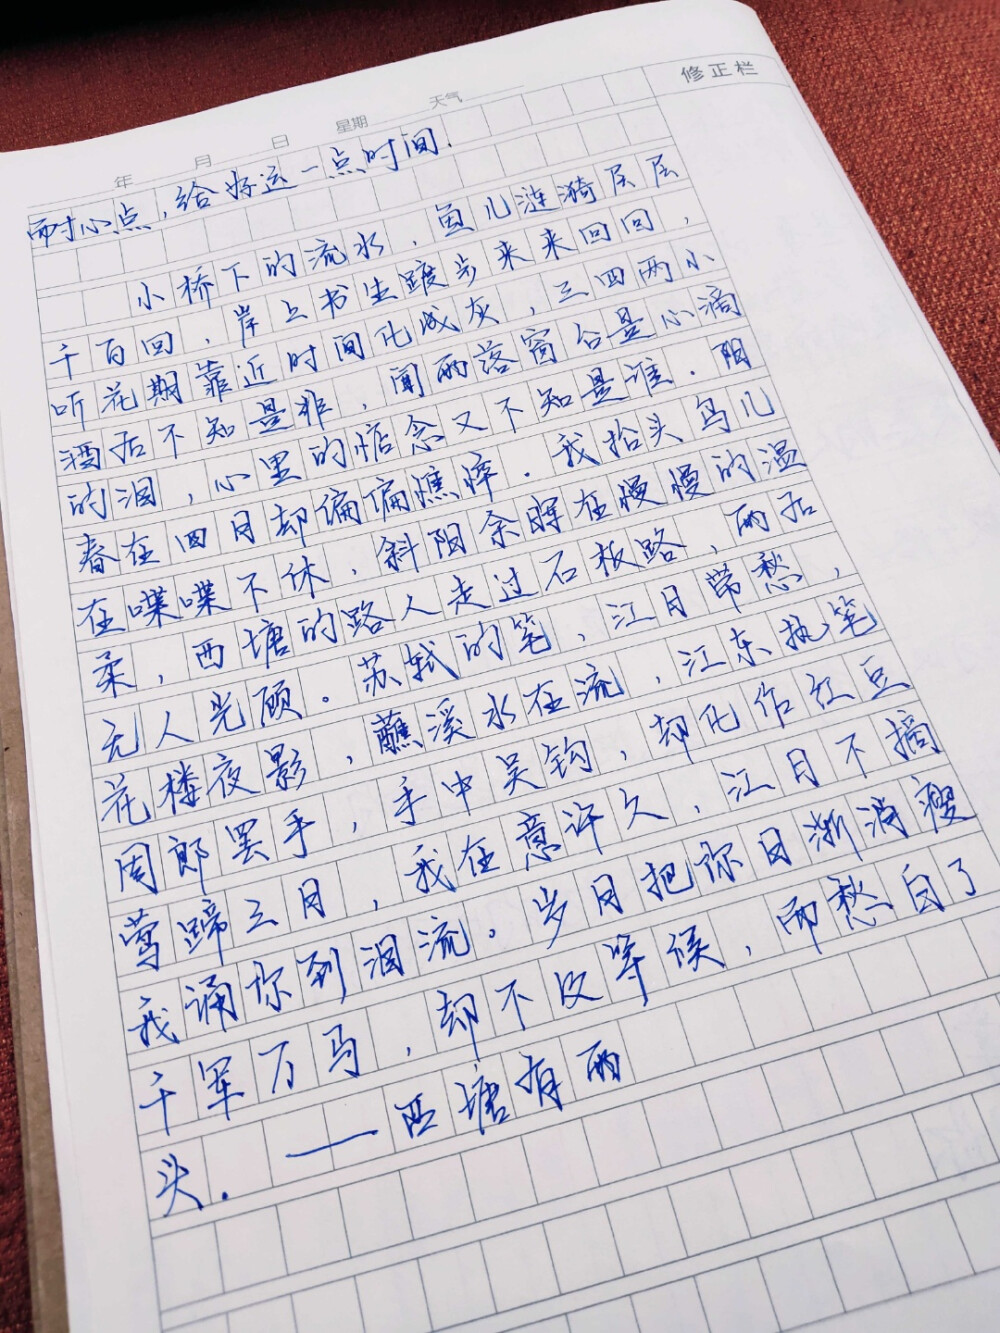 修正栏
年 月 日 星期 天气
耐心点,给好运一点时间.
小桥下的流水,鱼儿涟漪层层
千百回,岸上书生踱步来来回回,
听花期靠近时间化成灰,三四两小
酒后不知是非,闻雨落窗台是心滴
的泪,心里的惦念又不知是谁.阳
春在四月却偏偏憔悴.我抬头鸟儿
在喋喋不休,斜阳余晖在慢慢的温
柔,西塘的路人走过石板路,雨后
无人光顾。苏轼的笔,江月带愁,
花楼夜影,蘸溪水在流,江东执笔
周郎罢手,手中吴钩,却化作红豆
莺蹄三月,我在意许久,江月不摘
我诵你到泪流。岁月把你日渐消瘦
千军万马,却不及等候,而愁白了
头. ——西塘有雨